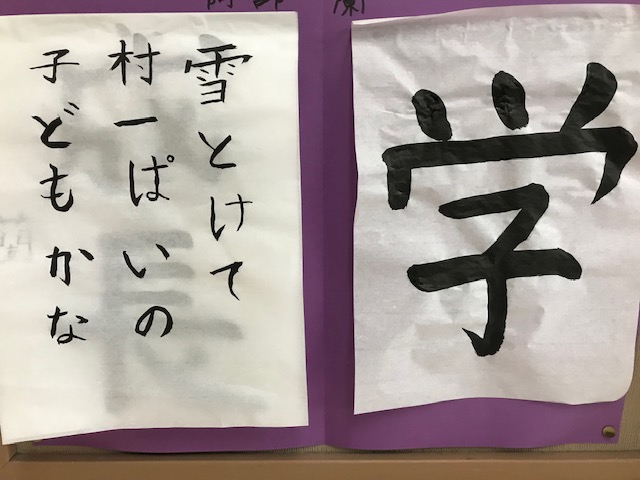 学
雪とけて
村一ぱいの
子どもかな